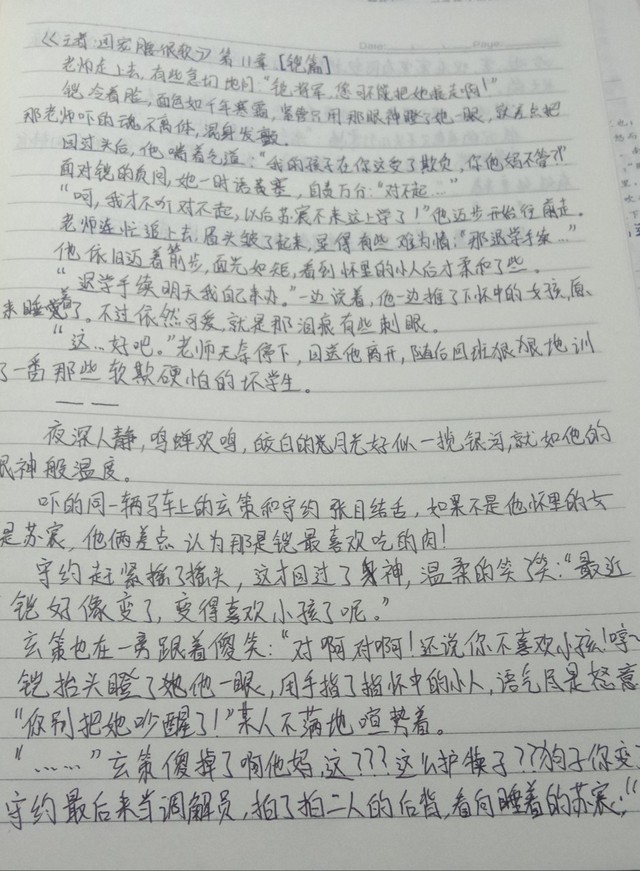 《王者:团宠胜很歌》第11章[铠篇]
老师走上去,有些急切地问:“铠将军,您可不能把她带走啊!”
铠冷着脸,面色如千年寒霜,紧紧只用那眼神瞪了她一眼,就差点把
那老师吓的魂不离体,浑身发颤。
回过头后,他喘着气道:“我的孩子在你这受了欺负,你他妈不管?”
面对铠的质问,她一时语塞,自责万分:“对不起...”
“呵,我才不听对不起,以后苏宸不来这上学了!”他迈步开始往前走。
老师连忙追上去,眉头皱了起来,显得有些难为情:“那退学手续...”
他依旧迈着箭步,面光如炬,看到怀里的小人后才柔和了些。
“退学手续明天我自己来办。”一边说着,他一边推了下怀中的女孩,原
来睡着了。不过依然可爱,就是那泪痕有些刺眼。
“这...好吧。”老师无奈停下,目送他离开,随后回班狠狠地训
了一番那些软欺硬怕的坏学生。
— —
夜深人静,鸣蝉欢鸣,皎白的月光好似一揽银河,就如他的
眼神般温度。
吓的同一辆马车上的玄策和守约张目结舌,如果不是他怀里的女
是苏宸,他俩差点认为那是铠最喜欢吃的肉!
守约赶紧摇了摇头,这才回过了神,温柔的笑了笑:“最近
铠好像变了,变得喜欢小孩了呢。”
玄策也在一旁跟着傻笑:“对啊对啊!还说你不喜欢小孩!哼~
铠抬头瞪了他一眼,用手指了指怀中的小人,语气尽是怒意
“你别把她吵醒了!”某人不满地喧势着。
“……”玄策傻掉了啊他妈,这???这么护犊子??狗子你变?
守约最后来当调解员,拍了拍二人的后背,看向睡着的苏宸:“